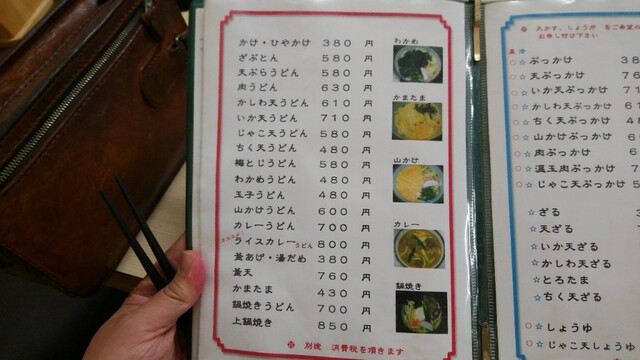 かけ・ひやかけ 380 円
ざぶとん 580 円
天ぷらうどん 580 円
肉うどん 630 円
かしわ天うどん 610 円
いか天うどん 710 円
じゃこ天うどん 580 円
ちく天うどん 480 円
梅とじうどん 580 円
わかめうどん 480 円
玉子うどん 480 円
山かけうどん 600 円
カレーうどん 700 円
ライスカレーうどん 800 円
釜あげ・湯だめ 380 円
釜天 760 円
かまたま 430 円
鍋焼きうどん 700 円
上鍋焼き 850 円
※ 別途 消費税を頂きます
わかめ
かまたま
山かけ
カレー
鍋焼き
※ 天かす、しょうが をご希望の
お申し付け下さい
温 冷
○☆ぶっかけ 38
○☆天ぷっかけ 76
○☆いか天ぶっかけ 71
○☆かしわ天ぶっかけ 61
○☆ちく天ぶっかけ 48
○☆山かけぶっかけ 6
○☆肉ぶっかけ 6
○☆温玉肉ぶっかけ 7
○☆じゃこ天ぶっかけ 5
☆ざる
☆天ざる
☆いか天ざる
☆かしわ天ざる
☆とろたま
☆ちく天ざる
○☆しょうゆ
○☆じゃこ天しょうゆ